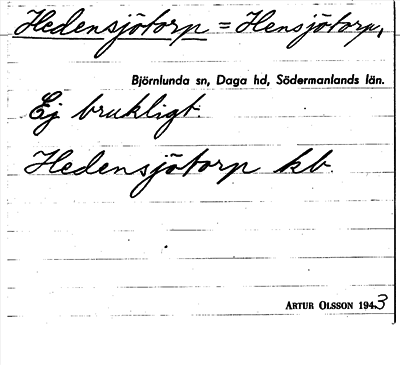 Hedensjötorp = Hensjötorp,
Björnlunda sn, Daga hd, Södermanlands län.
Ej brukligt.
Hedensjötorp kb.
ARTUR OLSSON 1943